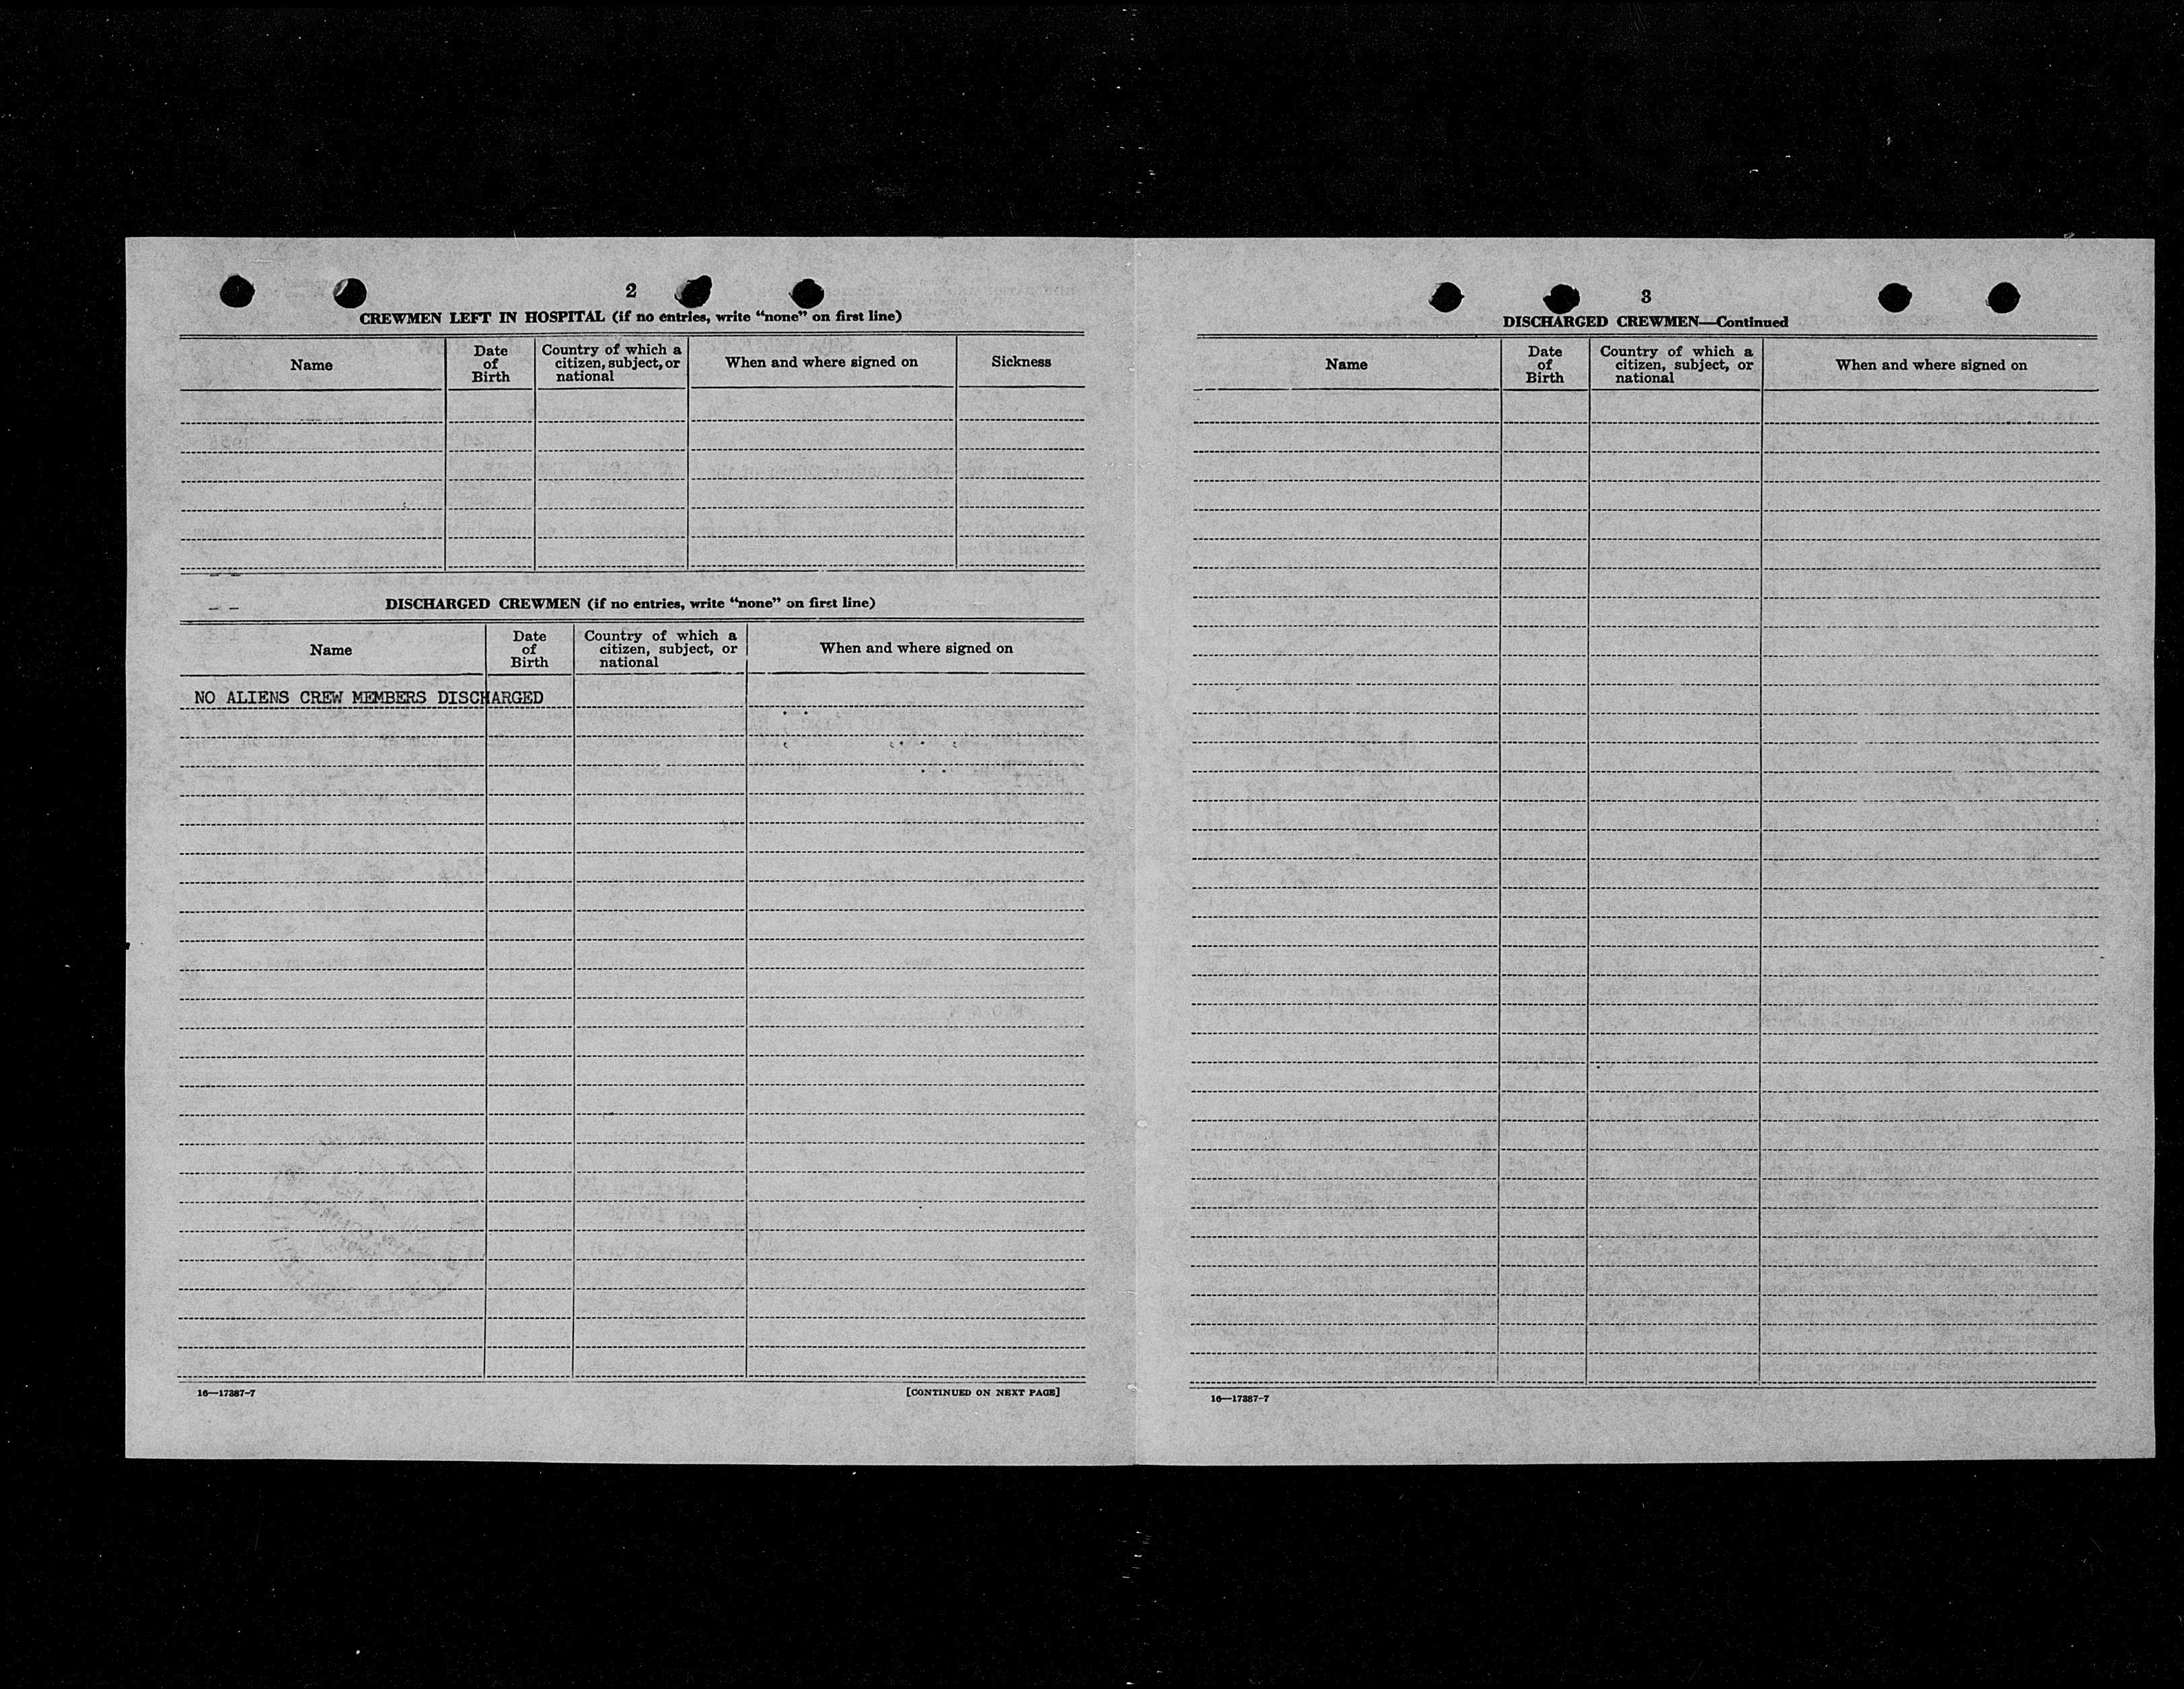 2
CREWMEN LEFT IN HOSPITAL (if no entries, write "none" on first line)
Name
Date of Birth
Country of which a citizen, subject, or national
When and where signed on
Sickness
DISCHARGED CREWMEN (if no entries, write "none" on first line)
Name
Date of Birth
Country of which a citizen, subject, or national
When and where signed on
NO ALIENS CREW MEMBERS DISCHARGED
16—17387-7
[CONTINUED ON NEXT PAGE]
3
DISCHARGED CREWMEN—Continued
Name
Date of Birth
Country of which a citizen, subject, or national
When and where signed on
16—17387-7